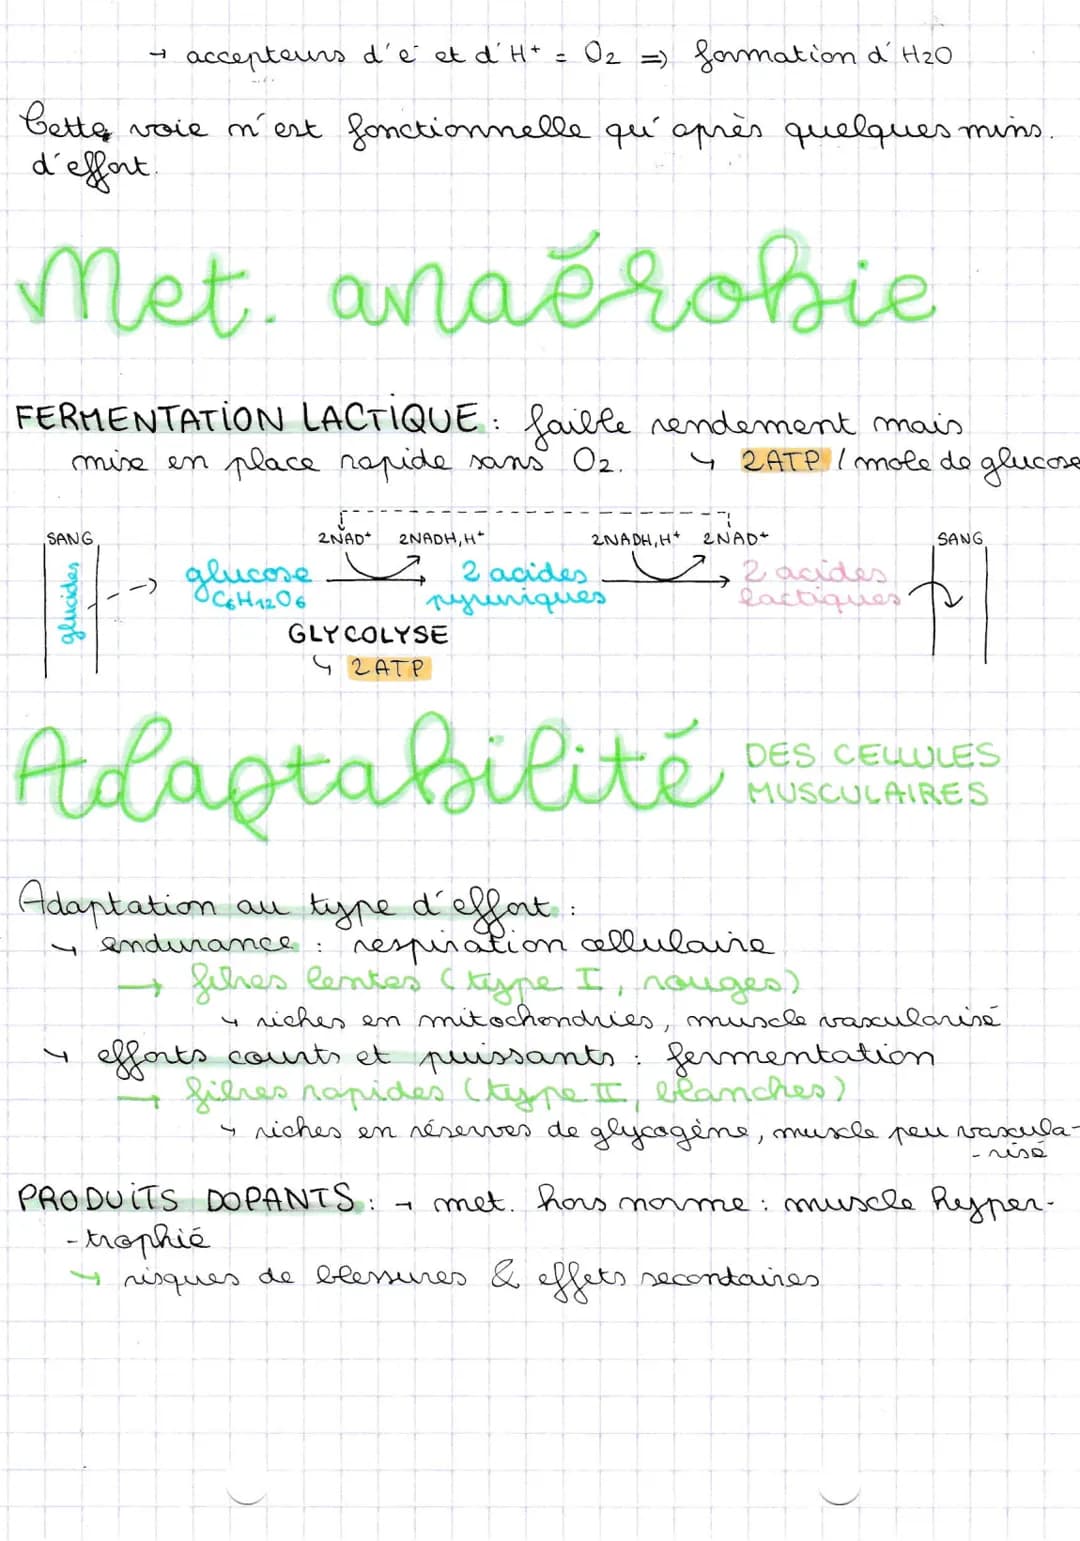 → accepteurs d'e⁻ et d'H⁺ = O2 => formation d'H2O
Cette voie n'est fonctionnelle qu'après quelques mins.
d'effort.
Met. anaérobie
FERMENTATION LACTIQUE : faible rendement mais
mise en place rapide sans O2. ↳ 2ATP / mole de glucose
SANG 2NAD+ 2NADH,H+ 2NADH,H+ 2NAD+ SANG
glucides glucose 2 acides 2 acides
C6H12O6 pyruviques lactiques
GLYCOLYSE
↳ 2ATP
Adaptabilité DES CELLULES
MUSCULAIRES
Adaptation au type d'effort :
↳ endurance : respiration cellulaire
→ fibres lentes (type I, rouges)
↳ riches en mitochondries, muscle vascularisé
↳ efforts courts et puissants : fermentation
→ fibres rapides (type II, blanches)
↳ riches en réserves de glycogène, muscle peu vascula-
-risé
PRODUITS DOPANTS : → met. hors norme : muscle hyper-
-trophié
↳ risques de blessures & effets secondaires